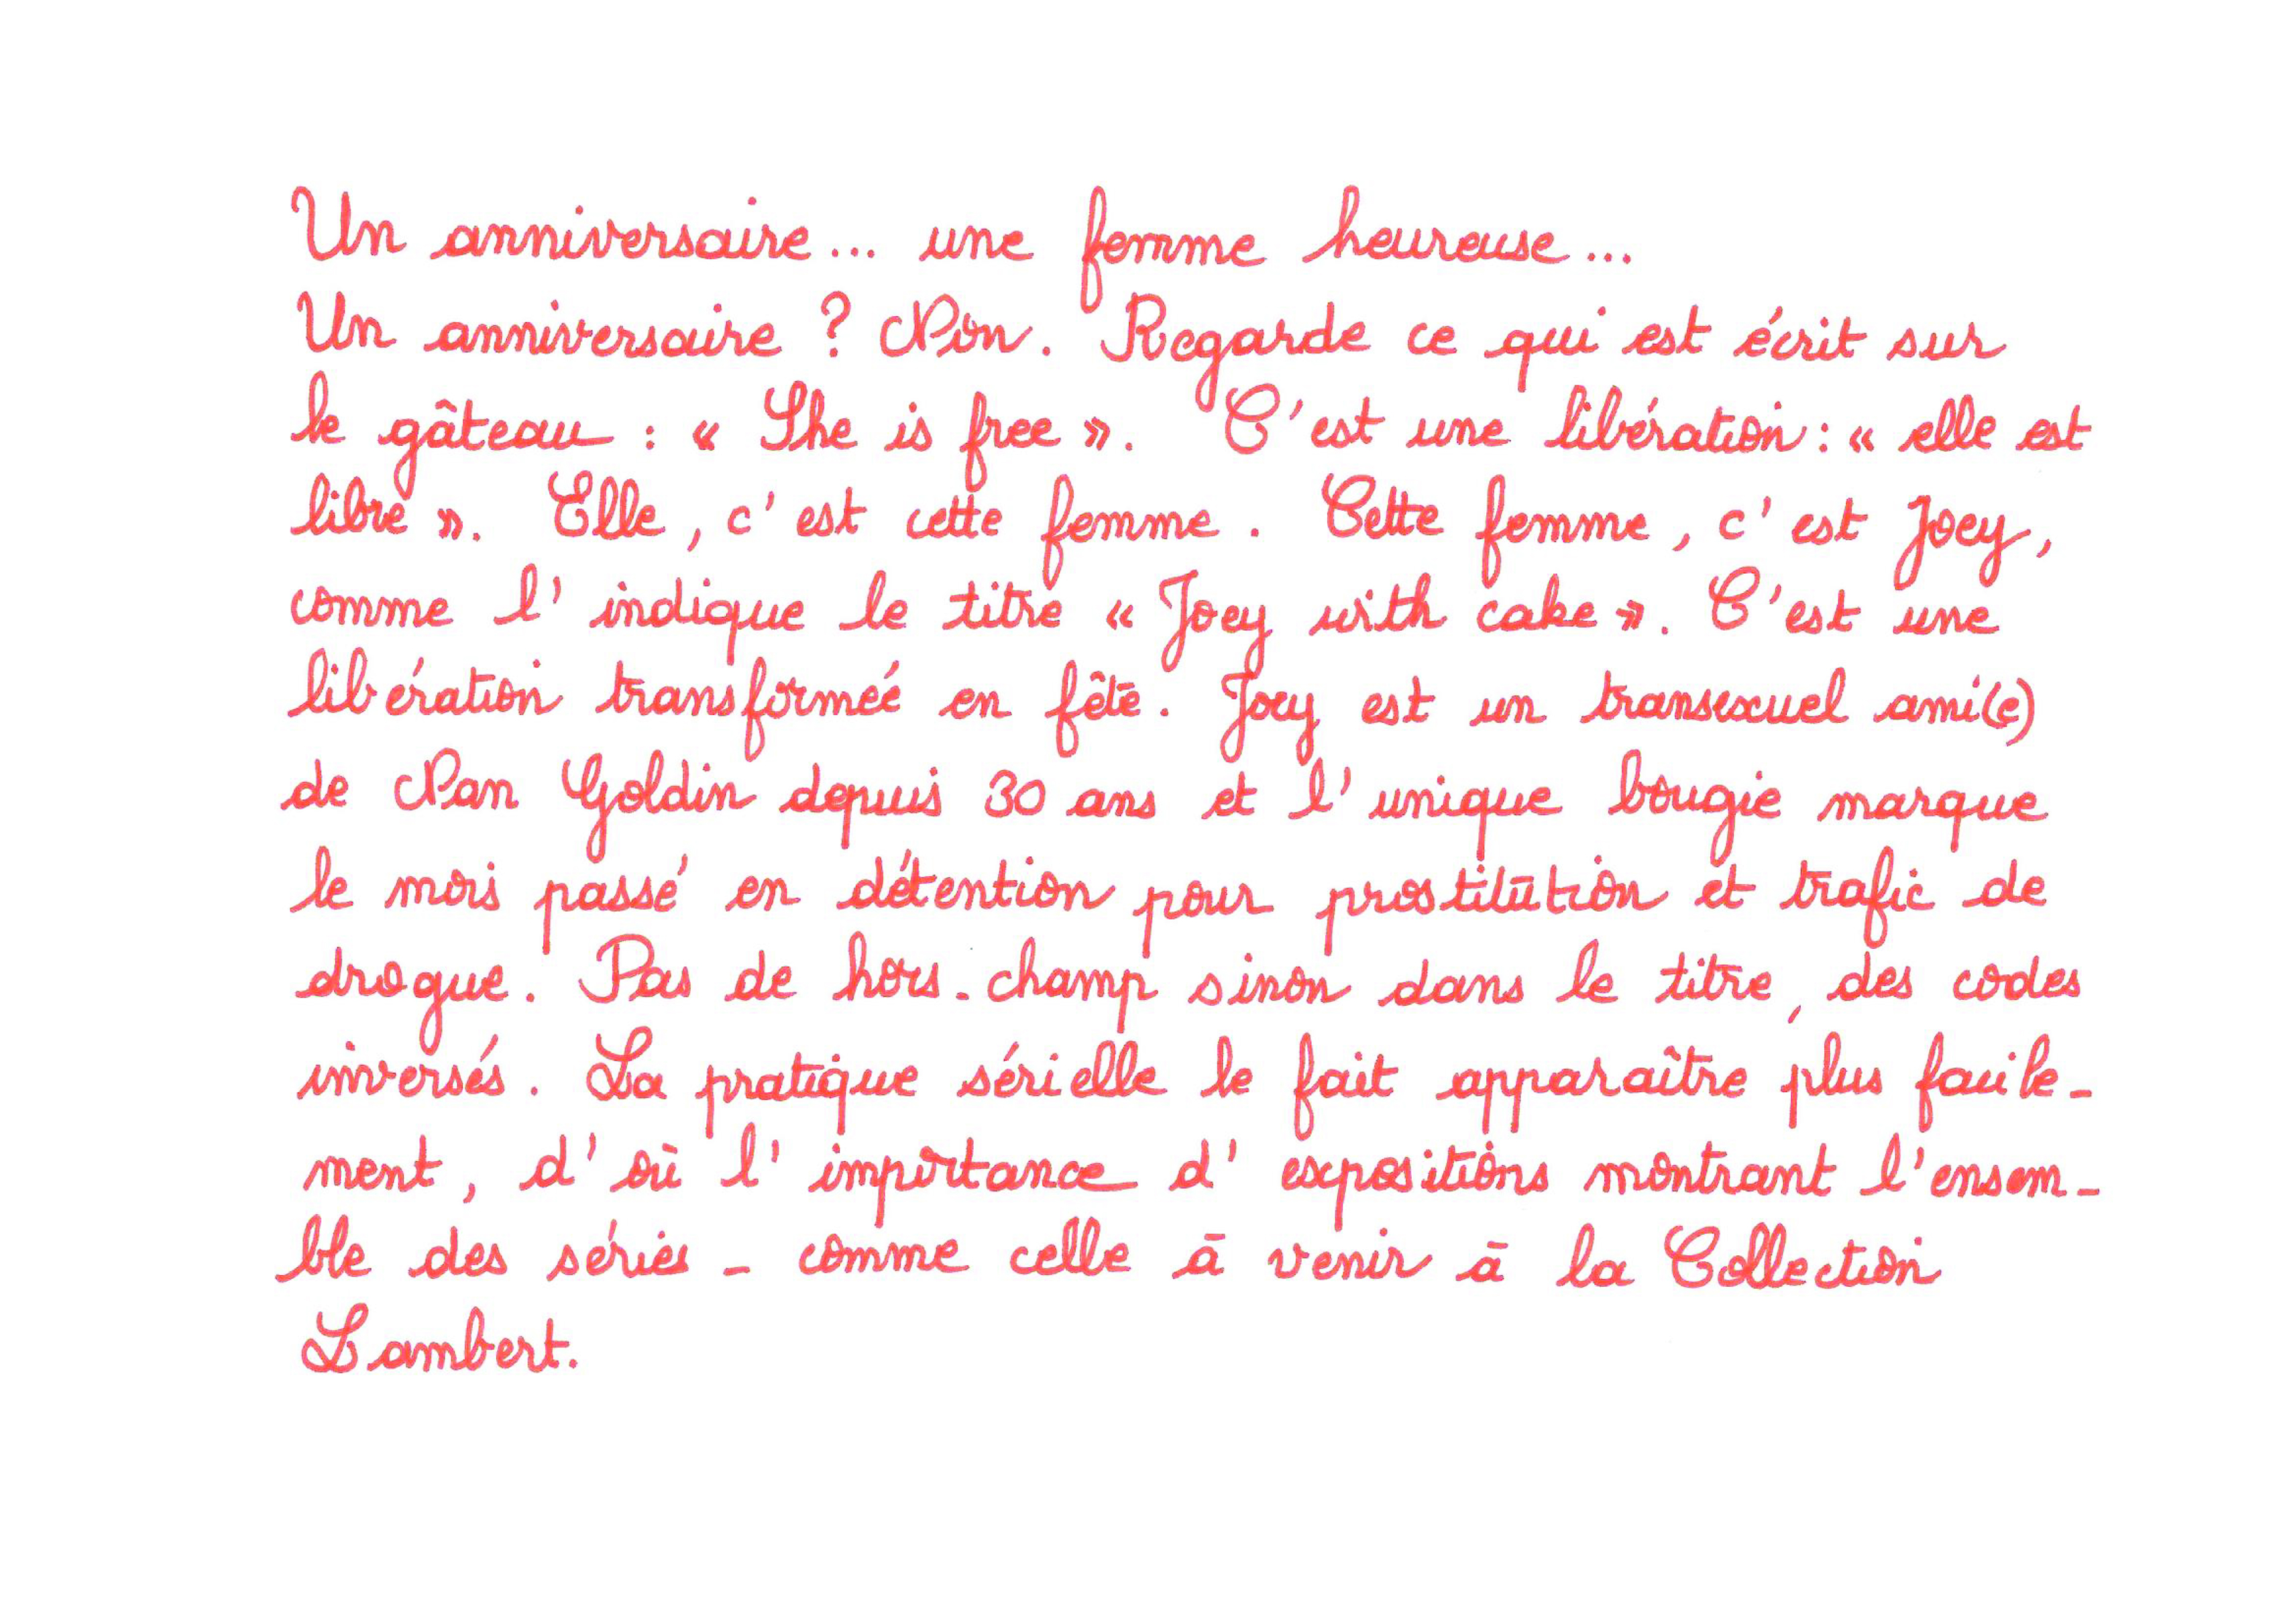 Un anniversaire... une femme heureuse...
Un anniversaire ? Non. Regarde ce qui est écrit sur
le gâteau : « She is free ». C'est une libération : « elle est
libre ». Elle, c'est cette femme. Cette femme, c'est Joey,
comme l'indique le titre « Joey with cake ». C'est une
libération transformée en fête. Joey est un transexuel ami(e)
de Nan Goldin depuis 30 ans et l'unique bougie marque
le mois passé en détention pour prostitution et trafic de
drogue. Pas de hors-champ sinon dans le titre, des codes
inversés. La pratique sérielle le fait apparaître plus facile-
ment, d'où l'importance d'expositions montrant l'ensem-
ble des séries - comme celle à venir à la Collection
Lambert.